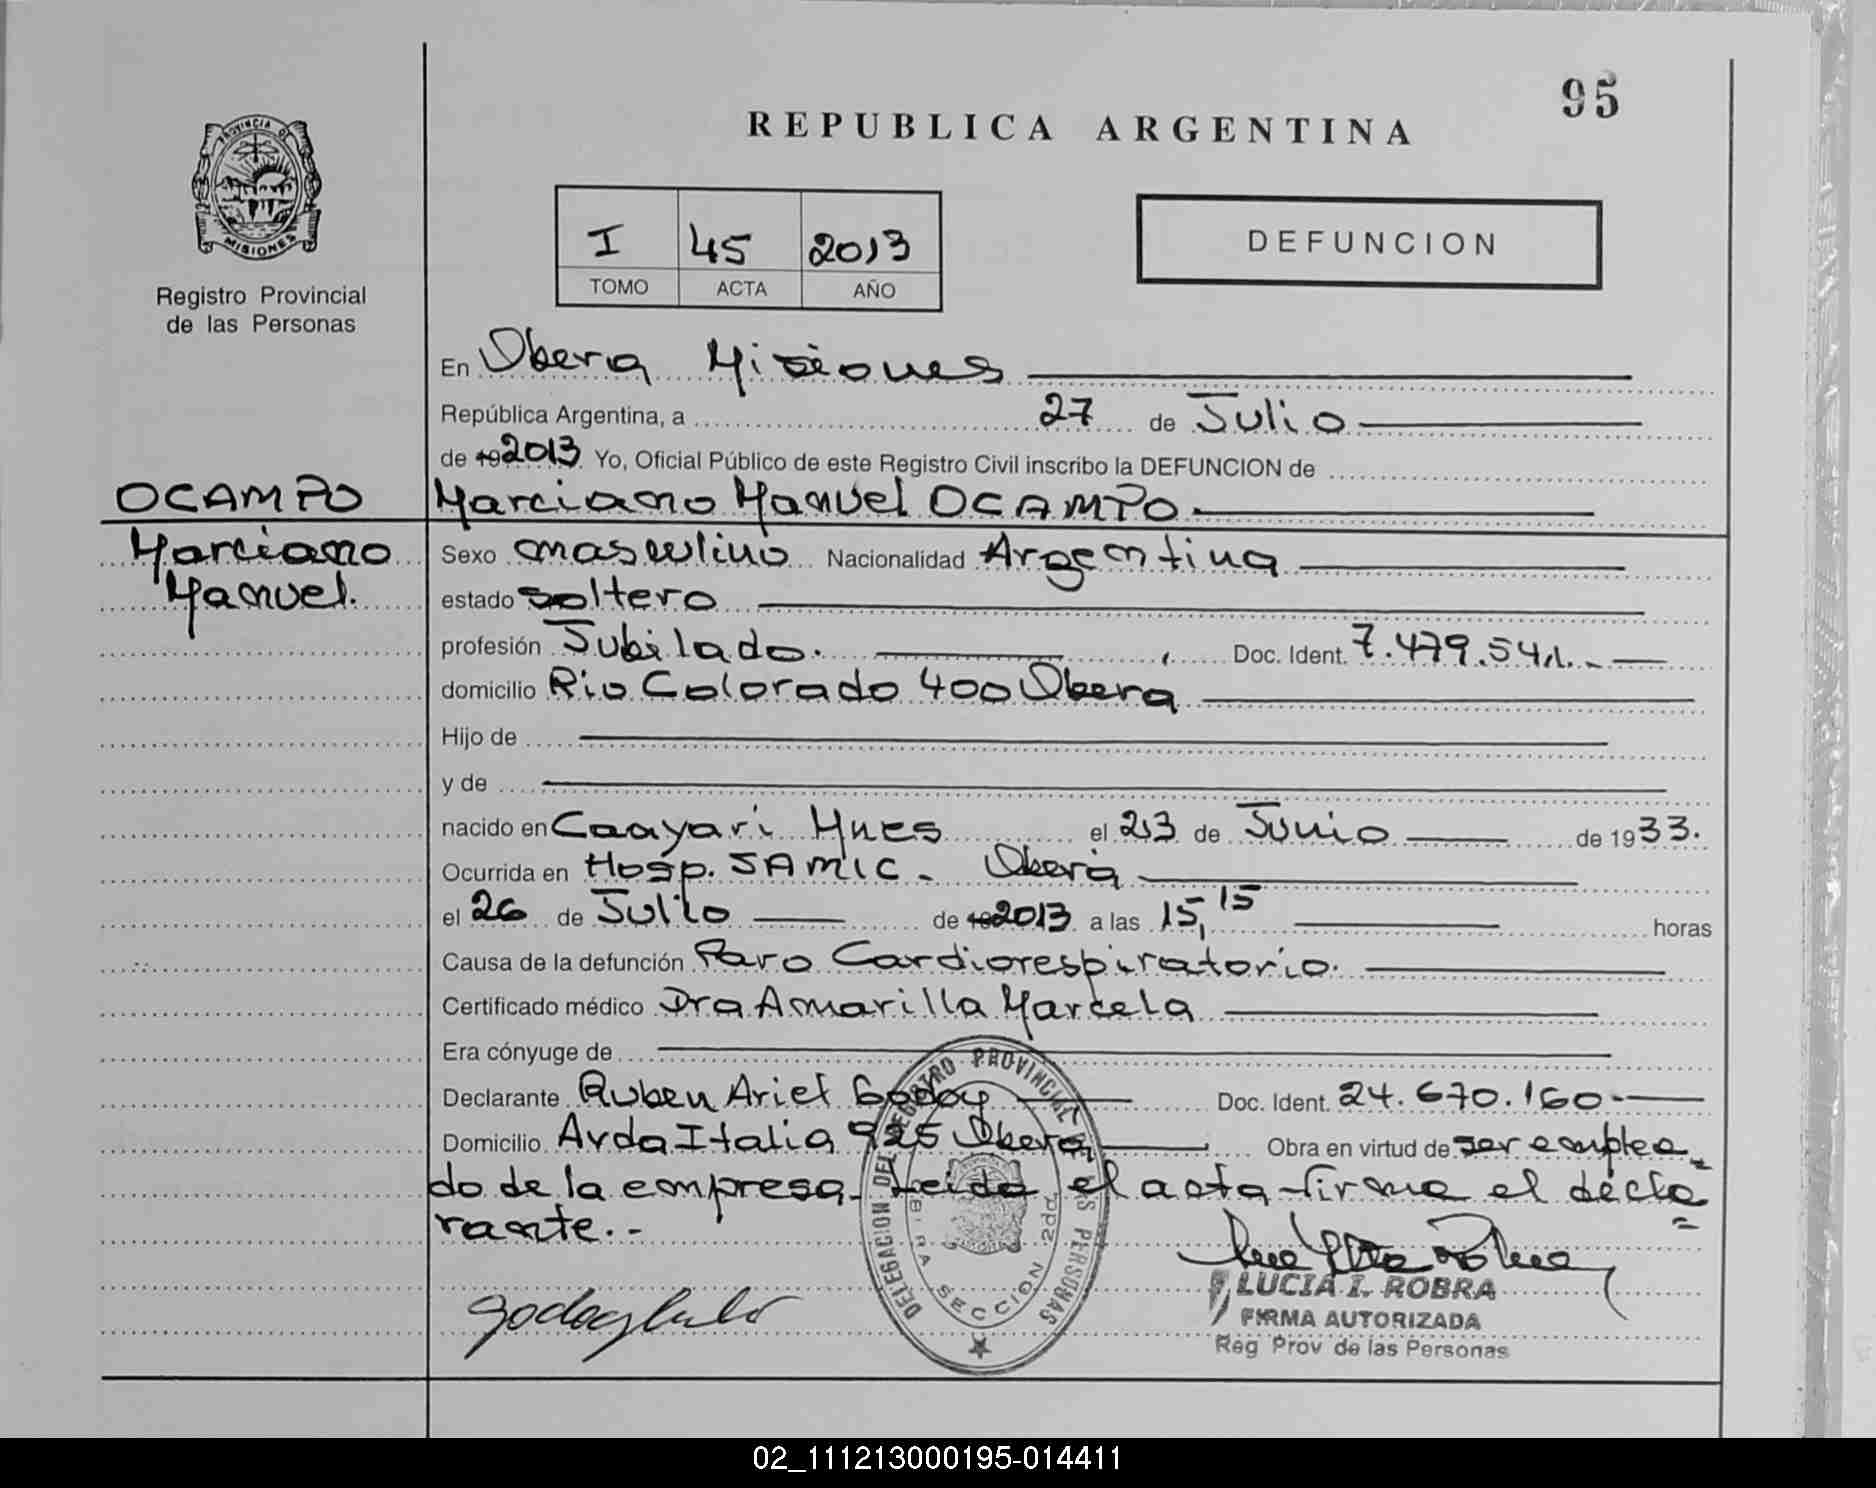 95
REPUBLICA ARGENTINA
PROVINCIA DE
MISIONES
Registro Provincial
de las Personas
I 45 2013
TOMO ACTA AÑO
DEFUNCION
En Obera Misiones
República Argentina, a 27 de Julio
de 19 2013. Yo, Oficial Público de este Registro Civil inscribo la DEFUNCION de
OCAMPO
Marciano Manuel OCAMPO.
Marciano
Manuel.
Sexo masculino Nacionalidad Argentina
estado soltero
profesión Jubilado. Doc. Ident. 7.479.541.-
domicilio Rio Colorado 400 Obera
Hijo de
y de
nacido en Caayari Mnes el 23 de Junio de 1933.
Ocurrida en Hosp. SAMIC - Oberá
el 26 de Julio de 19 2013 a las 15,15 horas
Causa de la defunción Paro Cardiorespiratorio.
Certificado médico Dra Amarilla Marcela
Era cónyuge de
Declarante Ruben Ariel Godoy Doc. Ident. 24.670.160.-
Domicilio Avda Italia 925 Obera Obra en virtud de ser emplea
do de la empresa - Leida el acta firma el decla
rante.-
DELEGACION DEL REGISTRO PROVINCIAL DE LAS PERSONAS
SECCION 2da
LUCIA I. ROBRA
FIRMA AUTORIZADA
Reg Prov de las Personas
02_111213000195-014411